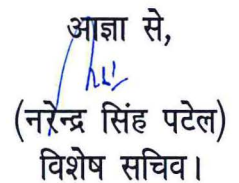 आज्ञा से,
(नरेन्द्र सिंह पटेल)
विशेष सचिव।